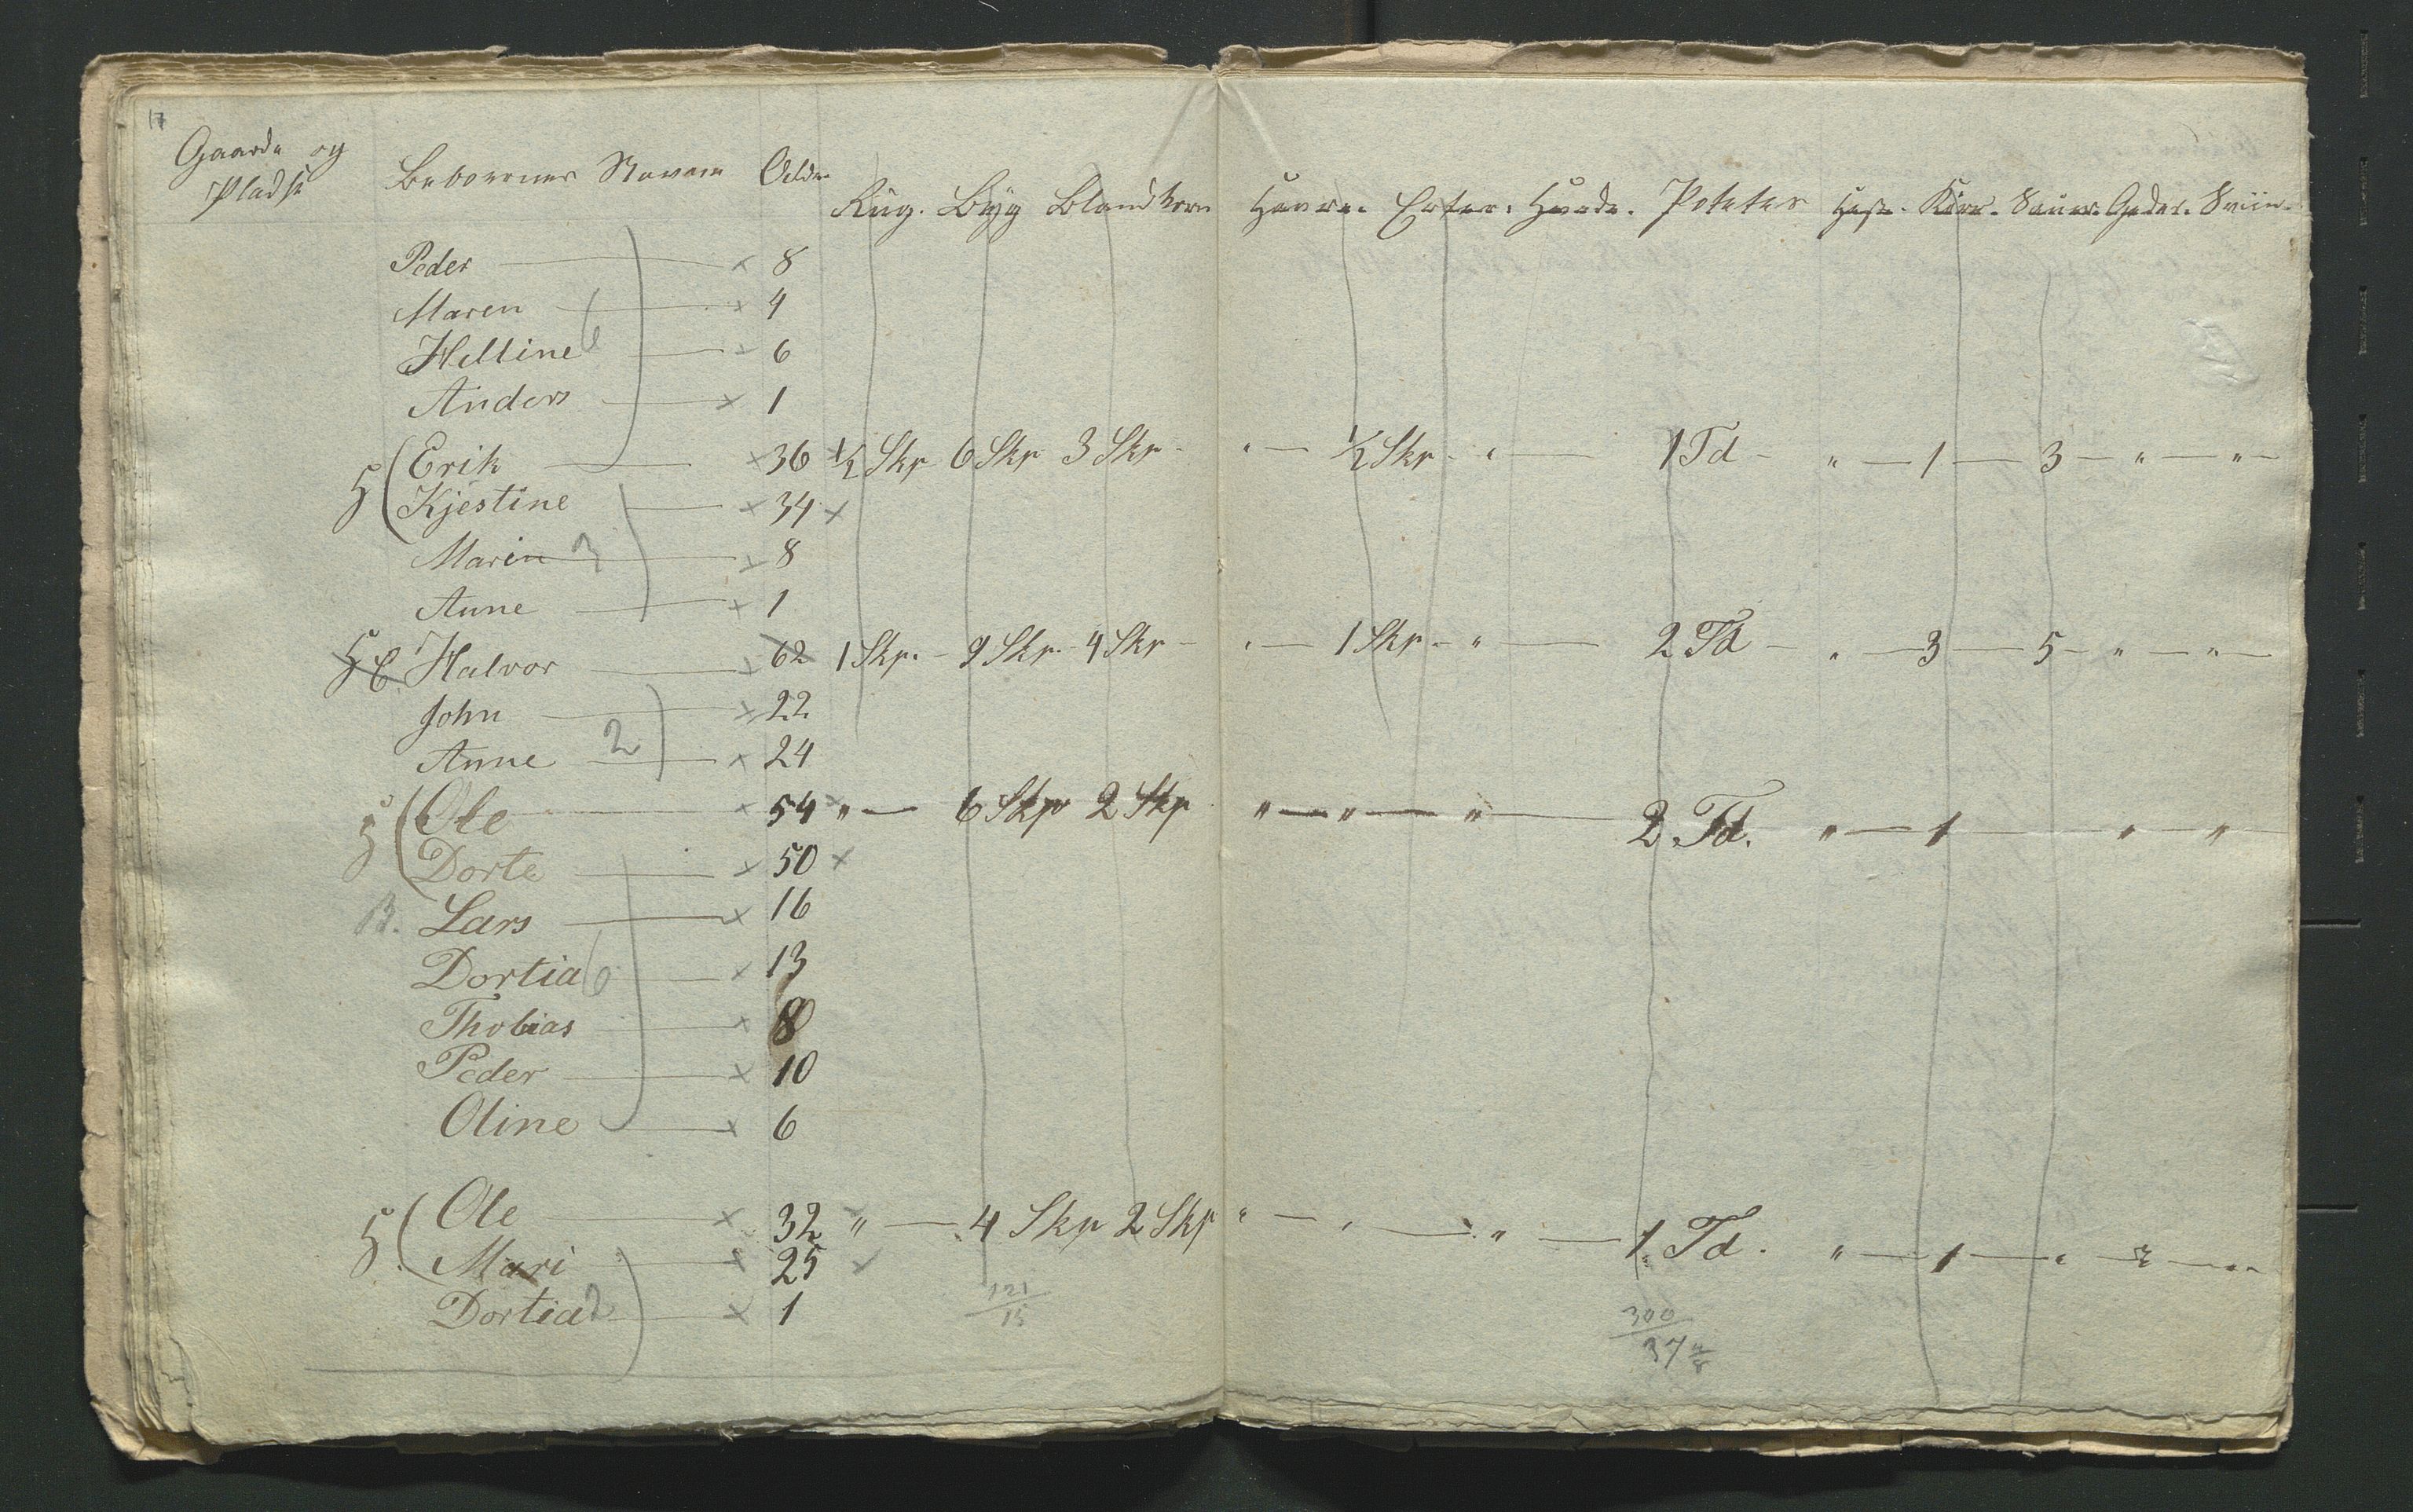 17
Gaarde og Pladse Beboernes Navne Alder Rug. Byg Blandkorn Havre. Erter. Hvede. Poteter Hest. Kiør. Sauer. Geder. Sviin.
Peder 8
Maren 4
6
Helline 6
Anders 1
Erik 36 ½ Skp 6 Skp 3 Skp - " — ½ Skp - " — 1 Td - " — 1 — 3 — " — " —
Kjestine 34
Marin 3 8
Anne 1
Halvor 62 1 Skp. - 9 Skp. 4 Skp - " — 1 Skp - " — 2 Td - " — 3 — 5 - " — " —
John 22
2
Anne 24
Ole 54 " — 6 Skp 2 Skp " — " — " — 2 Td. " — 1 — " — "
Dorte 50
Lars 16
Dortia 6 13
Thobias 8
Peder 10
Oline 6
Ole 32 " — 4 Skp 2 Skp " — " — " — 1 Td. " — 1 — " —
Mari 25
Dortia 2 1
121
15
300
37 4/8